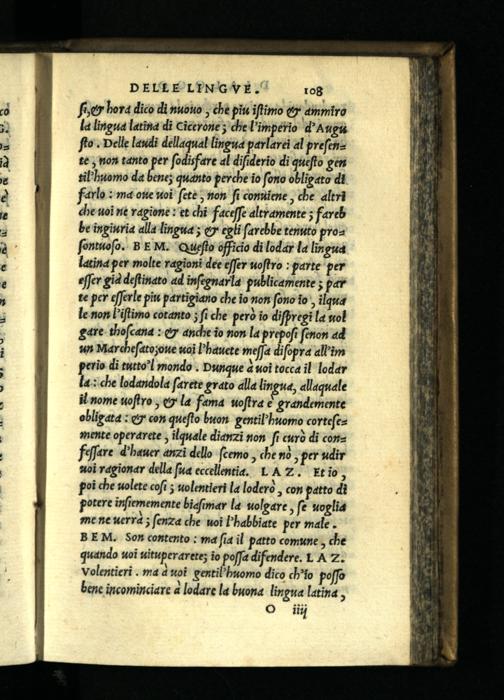 DELLE LINGVE. 108
si, & hora dico di nuouo, che piu istimo & ammiro
la lingua latina di Cicerone; che l'imperio d'Augu
sto. Delle laudi dellaqual lingua parlarei al presen-
te, non tanto per sodisfare al disiderio di questo gen
til'huomo da bene; quanto perche io sono obligato di
farlo: ma oue voi sete, non si conuiene, che altri
che voi ne ragione: et chi facesse altramente; fareb
be ingiuria alla lingua; & egli sarebbe tenuto pro-
sontuoso. BEM. Questo officio di lodar la lingua
latina per molte ragioni dee esser vostro: parte per
esser già destinato ad insegnarla publicamente; par
te per esserle piu partigiano che io non sono io, ilqua
le non l'istimo cotanto; si che però io dispregi la vol
gare thoscana: & anche io non la preposi senon ad
un Marchesato; oue voi l'hauete messa disopra all'im
perio di tutto'l mondo. Dunque à voi tocca il lodar
la: che lodandola sarete grato alla lingua, allaquale
il nome vostro, & la fama vostra è grandemente
obligata: & con questo buon gentil'huomo cortese-
mente operarete, ilquale dianzi non si curò di con-
fessare d'hauer anzi dello scemo, che nò, per udir
voi ragionar della sua eccellentia. LAZ. Et io,
poi che volete cosi; volentieri la loderò, con patto di
potere insiememente biasimar la volgare, se voglia
me ne verrà; senza che voi l'habbiate per male.
BEM. Son contento: ma sia il patto comune, che
quando voi vituperarete; io possa difendere. LAZ.
Volentieri. ma à voi gentil'huomo dico ch'io posso
bene incominciare à lodare la buona lingua latina,
O iiij